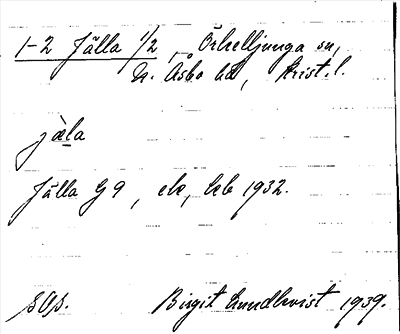 1-2 Jälla 1/2, Örkelljunga sn,
N. Åsbo hd, Krist. l.
jàla
Jälla G9, ek, kb 1932.
Birgit Lundkvist 1939.